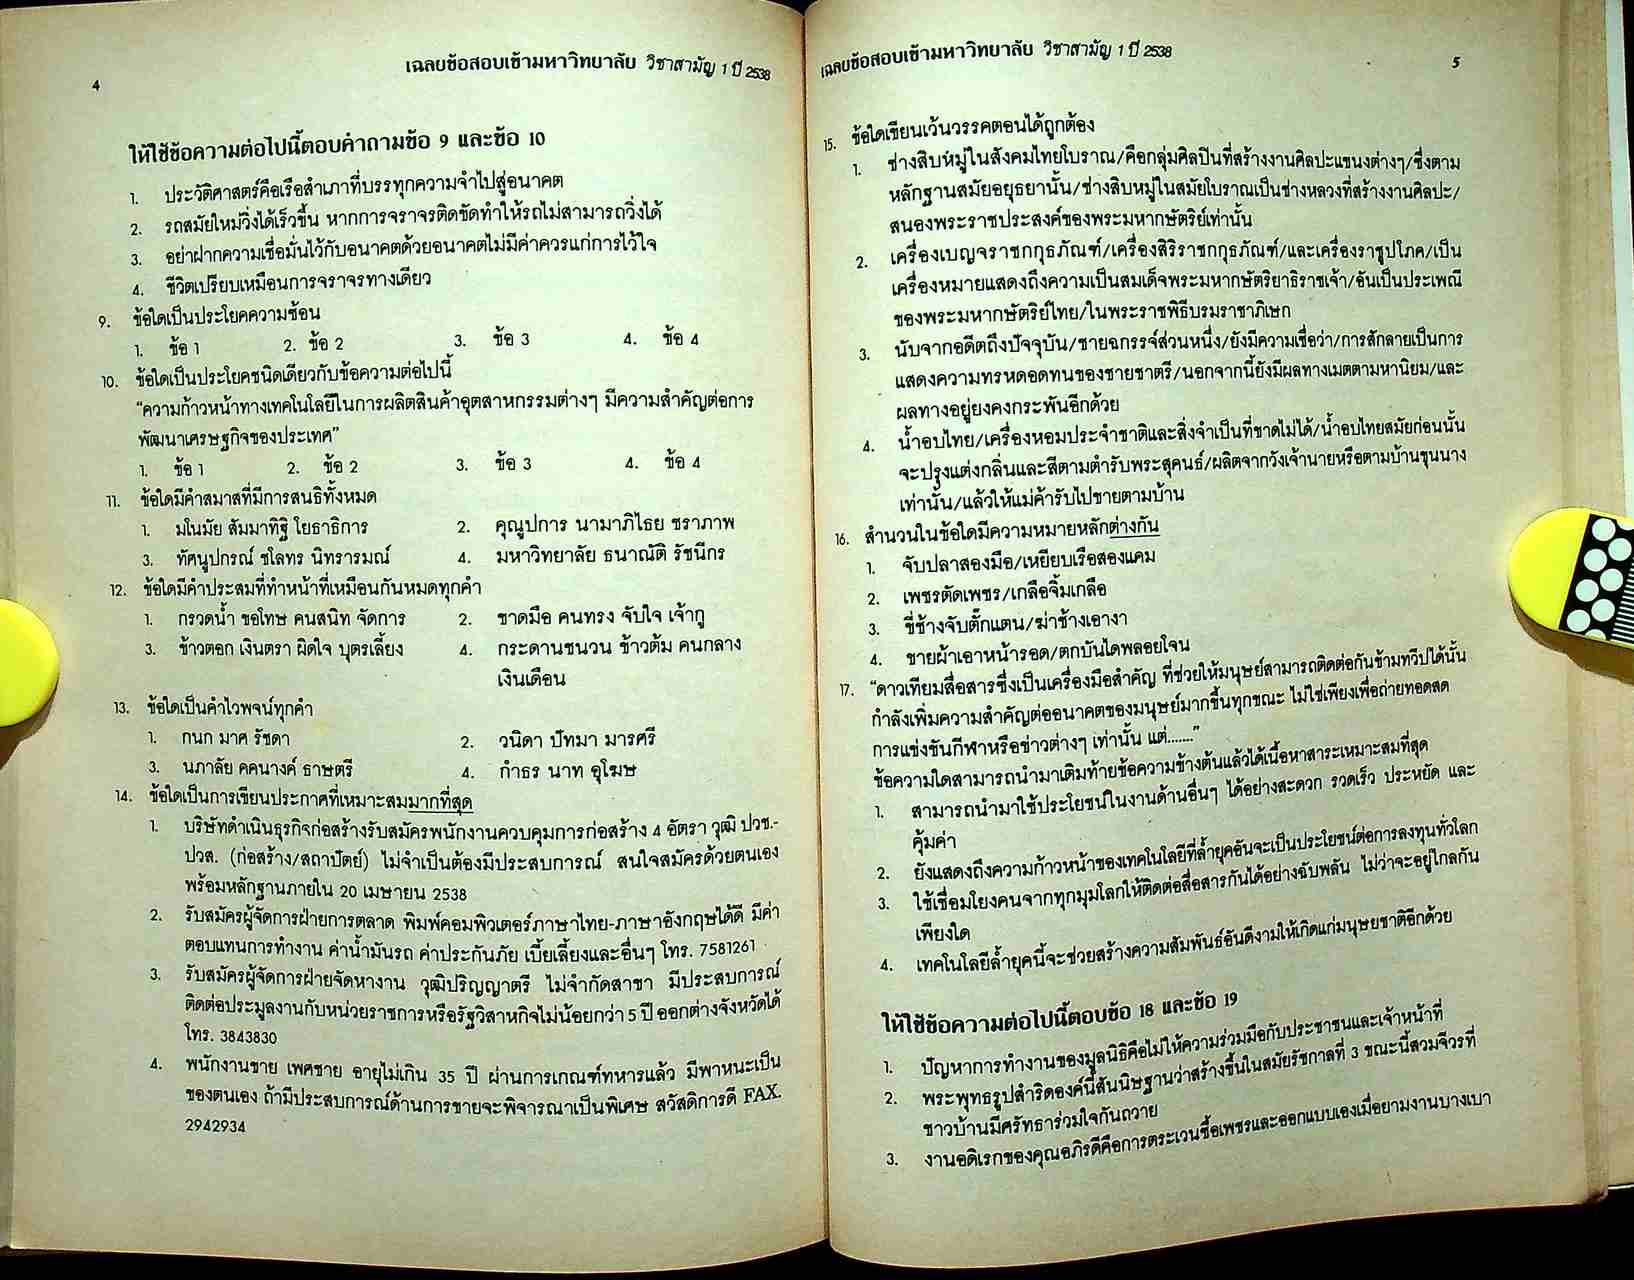 4
เฉลยข้อสอบเข้ามหาวิทยาลัย วิชาสามัญ 1 ปี 2538
ให้ใช้ข้อความต่อไปนี้ตอบคำถามข้อ 9 และข้อ 10
1. ประวัติศาสตร์คือเรือสำเภาที่บรรทุกความจำไปสู่อนาคต
2. รถสมัยใหม่วิ่งได้เร็วขึ้น หากการจราจรติดขัดทำให้รถไม่สามารถวิ่งได้
3. อย่าฝากความเชื่อมั่นไว้กับอนาคตด้วยอนาคตไม่มีค่าควรแก่การไว้ใจ
4. ชีวิตเปรียบเหมือนการจราจรทางเดียว
9. ข้อใดเป็นประโยคความซ้อน
1. ข้อ 1 2. ข้อ 2 3. ข้อ 3 4. ข้อ 4
10. ข้อใดเป็นประโยคชนิดเดียวกับข้อความต่อไปนี้
"ความก้าวหน้าทางเทคโนโลยีในการผลิตสินค้าอุตสาหกรรมต่างๆ มีความสำคัญต่อการ
พัฒนาเศรษฐกิจของประเทศ"
1. ข้อ 1 2. ข้อ 2 3. ข้อ 3 4. ข้อ 4
11. ข้อใดมีคำสมาสที่มีการสนธิทั้งหมด
1. มโนมัย สัมมาทิฐิ โยธาธิการ 2. คุณูปการ นามาภิไธย ชราภาพ
3. ทัศนูปกรณ์ ชโลทร นิทรารมณ์ 4. มหาวิทยาลัย ธนาณัติ รัชนีกร
12. ข้อใดมีคำประสมที่ทำหน้าที่เหมือนกันหมดทุกคำ
1. กรวดน้ำ ขอโทษ คนสนิท จัดการ 2. ขาดมือ คนทรง จับใจ เจ้ากู
3. ข้าวตอก เงินตรา ผิดใจ บุตรเลี้ยง 4. กระดานชนวน ข้าวต้ม คนกลาง
เงินเดือน
13. ข้อใดเป็นคำไวพจน์ทุกคำ
1. กนก มาศ รัชดา 2. วนิดา ปัทมา มารศรี
3. นภาลัย คคนางค์ ธาษตรี 4. กำธร นาท อุโฆษ
14. ข้อใดเป็นการเขียนประกาศที่เหมาะสมมากที่สุด
1. บริษัทดำเนินธุรกิจก่อสร้างรับสมัครพนักงานควบคุมการก่อสร้าง 4 อัตรา วุฒิ ปวช.-
ปวส. (ก่อสร้าง/สถาปัตย์) ไม่จำเป็นต้องมีประสบการณ์ สนใจสมัครด้วยตนเอง
พร้อมหลักฐานภายใน 20 เมษายน 2538
2. รับสมัครผู้จัดการฝ่ายการตลาด พิมพ์คอมพิวเตอร์ภาษาไทย-ภาษาอังกฤษได้ดี มีค่า
ตอบแทนการทำงาน ค่าน้ำมันรถ ค่าประกันภัย เบี้ยเลี้ยงและอื่นๆ โทร. 7581261
3. รับสมัครผู้จัดการฝ่ายจัดหางาน วุฒิปริญญาตรี ไม่จำกัดสาขา มีประสบการณ์
ติดต่อประมูลงานกับหน่วยราชการหรือรัฐวิสาหกิจไม่น้อยกว่า 5 ปี ออกต่างจังหวัดได้
โทร. 3843830
4. พนักงานขาย เพศชาย อายุไม่เกิน 35 ปี ผ่านการเกณฑ์ทหารแล้ว มีพาหนะเป็น
ของตนเอง ถ้ามีประสบการณ์ด้านการขายจะพิจารณาเป็นพิเศษ สวัสดิการดี FAX.
2942934
เฉลยข้อสอบเข้ามหาวิทยาลัย วิชาสามัญ 1 ปี 2538
5
15. ข้อใดเขียนเว้นวรรคตอนได้ถูกต้อง
1. ช่างสิบหมู่ในสังคมไทยโบราณ/คือกลุ่มศิลปินที่สร้างงานศิลปะแขนงต่างๆ/ซึ่งตาม
หลักฐานสมัยอยุธยานั้น/ช่างสิบหมู่ในสมัยโบราณเป็นช่างหลวงที่สร้างงานศิลปะ/
สนองพระราชประสงค์ของพระมหากษัตริย์เท่านั้น
2. เครื่องเบญจราชกกุธภัณฑ์/เครื่องสิริราชกกุธภัณฑ์/และเครื่องราชูปโภค/เป็น
เครื่องหมายแสดงถึงความเป็นสมเด็จพระมหากษัตริยาธิราชเจ้า/อันเป็นประเพณี
ของพระมหากษัตริย์ไทย/ในพระราชพิธีบรมราชาภิเษก
3. นับจากอดีตถึงปัจจุบัน/ชายฉกรรจ์ส่วนหนึ่ง/ยังมีความเชื่อว่า/การสักลายเป็นการ
แสดงความทรหดอดทนของชายชาตรี/นอกจากนี้ยังมีผลทางเมตตามหานิยม/และ
ผลทางอยู่ยงคงกระพันอีกด้วย
4. น้ำอบไทย/เครื่องหอมประจำชาติและสิ่งจำเป็นที่ขาดไม่ได้/น้ำอบไทยสมัยก่อนนั้น
จะปรุงแต่งกลิ่นและสีตามตำรับพระสุคนธ์/ผลิตจากวังเจ้านายหรือตามบ้านขุนนาง
เท่านั้น/แล้วให้แม่ค้ารับไปขายตามบ้าน
16. สำนวนในข้อใดมีความหมายหลักต่างกัน
1. จับปลาสองมือ/เหยียบเรือสองแคม
2. เพชรตัดเพชร/เกลือจิ้มเกลือ
3. ขี่ช้างจับตั๊กแตน/ฆ่าช้างเอางา
4. ขายผ้าเอาหน้ารอด/ตกบันไดพลอยโจน
17. "ดาวเทียมสื่อสารซึ่งเป็นเครื่องมือสำคัญ ที่ช่วยให้มนุษย์สามารถติดต่อกันข้ามทวีปได้นั้น
กำลังเพิ่มความสำคัญต่ออนาคตของมนุษย์มากขึ้นทุกขณะ ไม่ใช่เพียงเพื่อถ่ายทอดสด
การแข่งขันกีฬาหรือข่าวต่างๆ เท่านั้น แต่......."
ข้อความใดสามารถนำมาเติมท้ายข้อความข้างต้นแล้วได้เนื้อหาสาระเหมาะสมที่สุด
1. สามารถนำมาใช้ประโยชน์ในงานด้านอื่นๆ ได้อย่างสะดวก รวดเร็ว ประหยัด และ
คุ้มค่า
2. ยังแสดงถึงความก้าวหน้าของเทคโนโลยีที่ล้ำยุคอันจะเป็นประโยชน์ต่อการลงทุนทั่วโลก
3. ใช้เชื่อมโยงคนจากทุกมุมโลกให้ติดต่อสื่อสารกันได้อย่างฉับพลัน ไม่ว่าจะอยู่ไกลกัน
เพียงใด
4. เทคโนโลยีล้ำยุคนี้จะช่วยสร้างความสัมพันธ์อันดีงามให้เกิดแก่มนุษยชาติอีกด้วย
ให้ใช้ข้อความต่อไปนี้ตอบข้อ 18 และข้อ 19
1. ปัญหาการทำงานของมูลนิธิคือไม่ให้ความร่วมมือกับประชาชนและเจ้าหน้าที่
2. พระพุทธรูปสำริดองค์นี้สันนิษฐานว่าสร้างขึ้นในสมัยรัชกาลที่ 3 ขณะนี้สวมจีวรที่
ชาวบ้านมีศรัทธาร่วมใจกันถวาย
3. งานอดิเรกของคุณอภิรดีคือการตระเวนซื้อเพชรและออกแบบเองเมื่อยามงานบางเบา